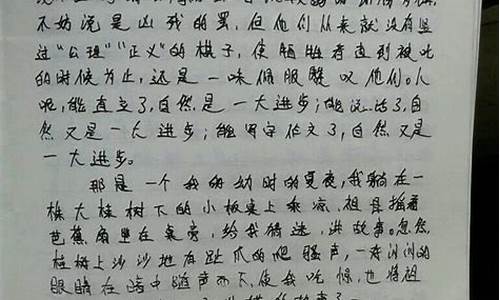 不妨说是凶残的罢,但他们从来就没有竖
过“公理”“正义”的旗子,使牺牲者直到被吃
的时候为止,还是一味佩服赞叹他们。人
呢,能直立了,自然是一大进步;能说话了,自
然又是一大进步;能写字作文了,自然又是
一大进步。
那是一个我的幼时的夏夜,我躺在一
株大桂树下的小板桌上乘凉,祖母摇着
芭蕉扇坐在桌旁,给我猜谜,讲故事。忽然,
桂树上沙沙地有趾爪的爬搔声,一对闪闪的
眼睛在暗中随声而下,使我吃惊,也将祖